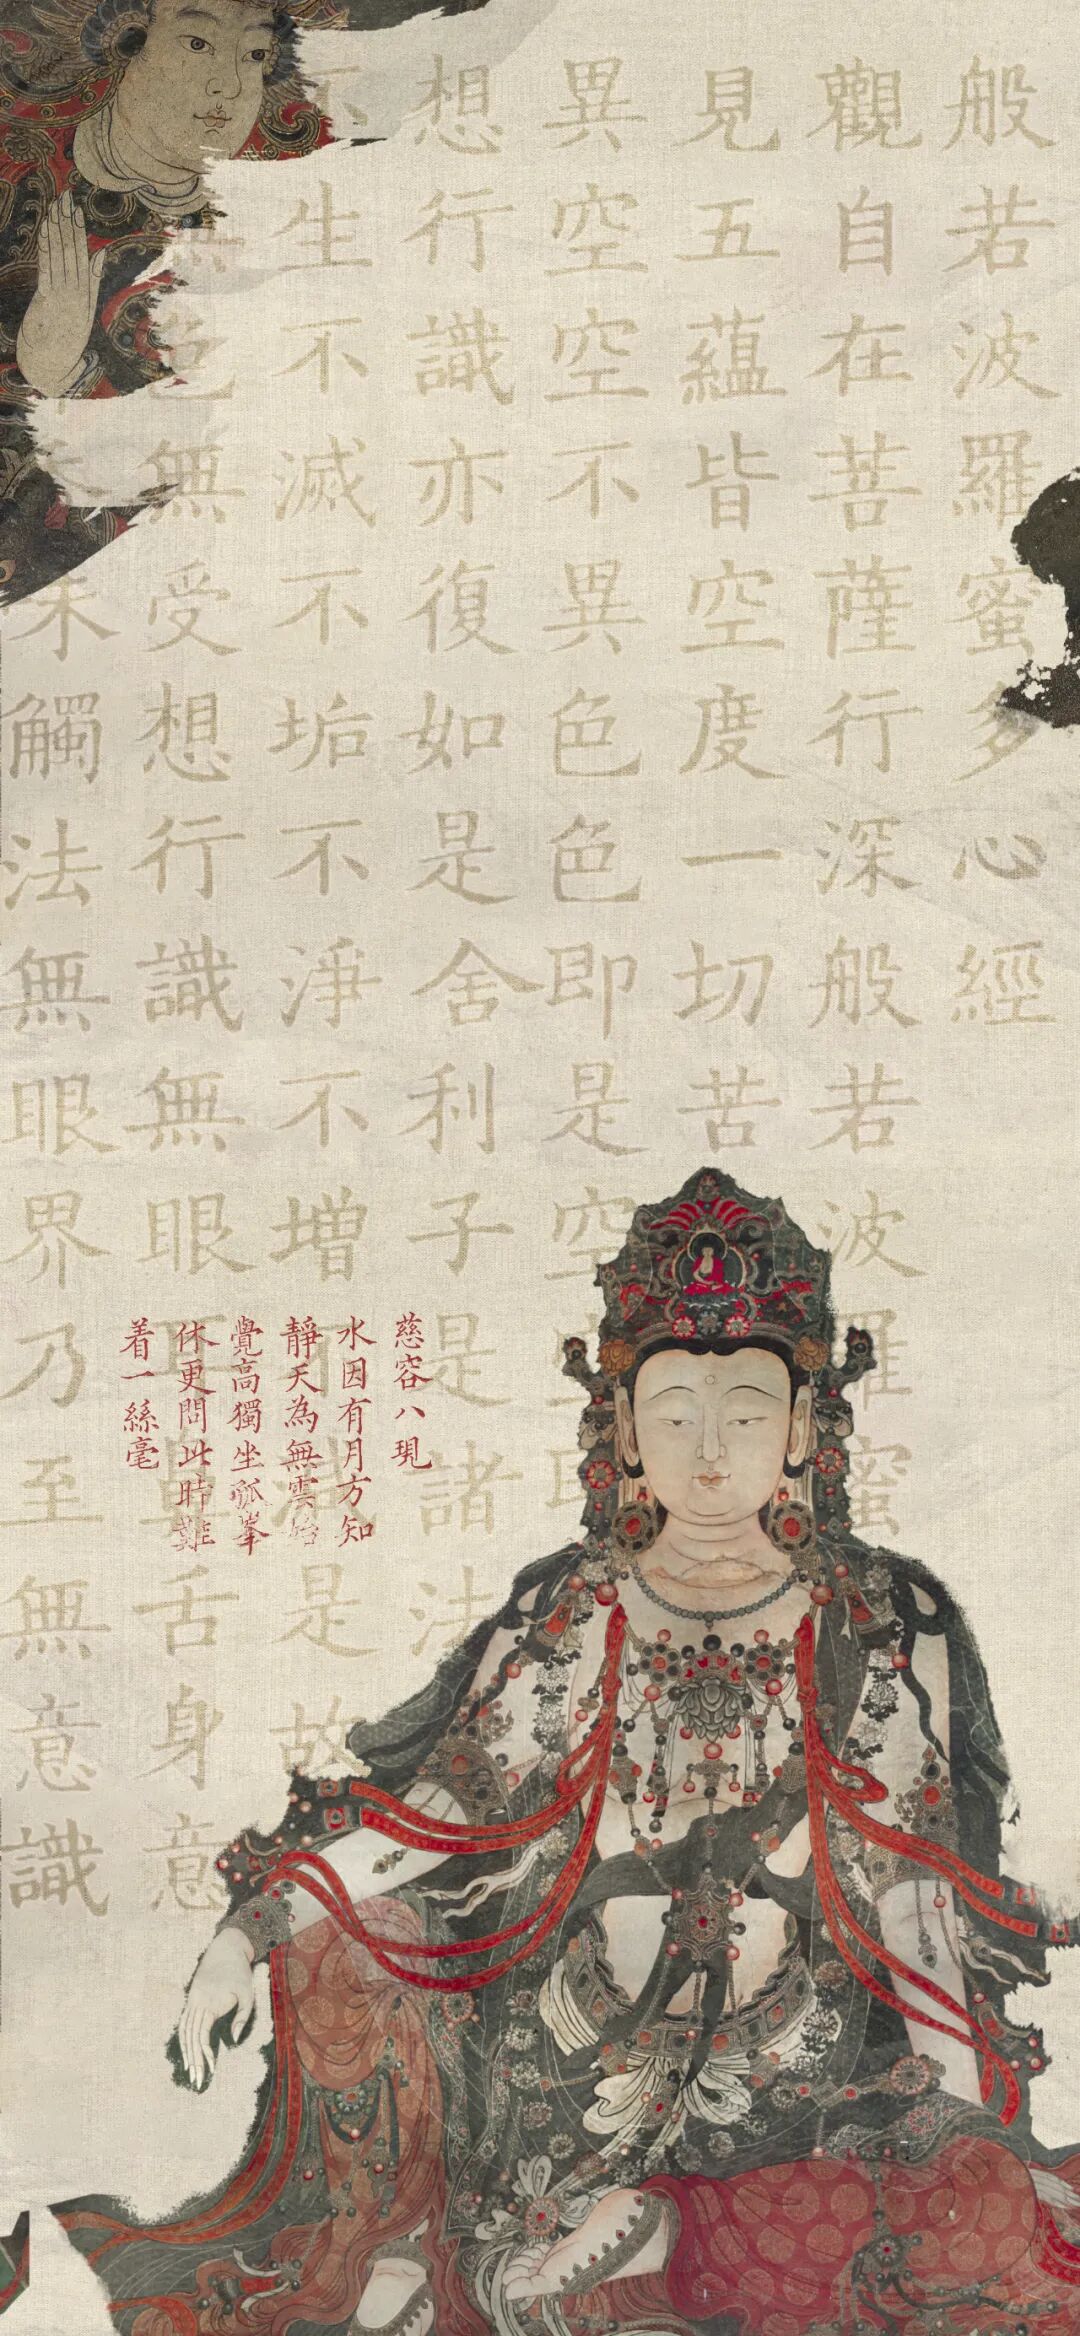 般若波羅蜜多心經
觀自在菩薩行深般若波羅蜜
見五蘊皆空度一切苦
異空空不異色色即是空
想行識亦復如是舍利子是諸法
不生不滅不垢不淨不增不減是故
無色無受想行識無眼耳鼻舌身意
味觸法無眼界乃至無意識
慈容八現
水因有月方知
靜天為無雲始
覺高獨坐孤峯
休更問此時難
着一絲毫